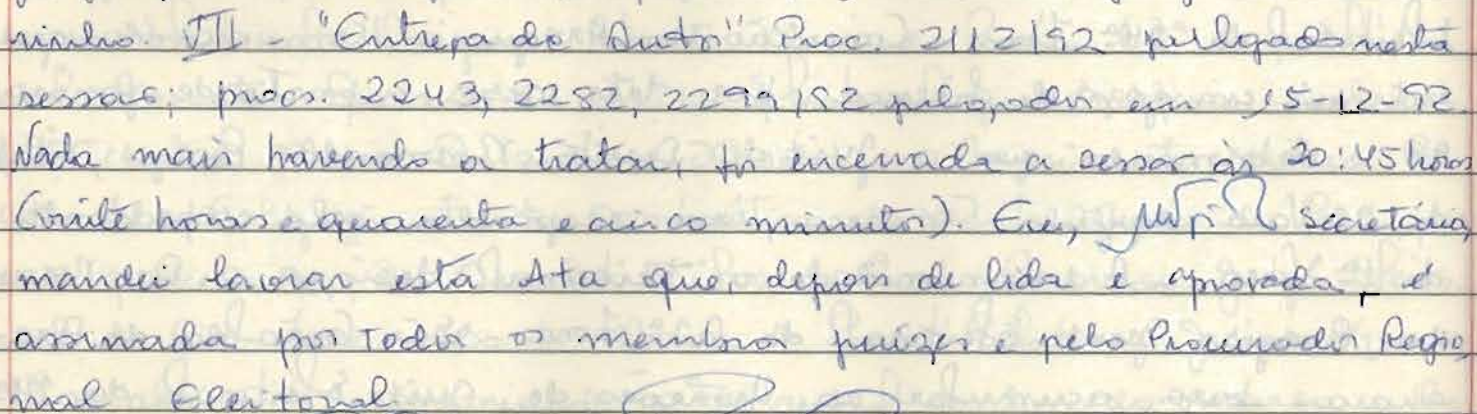 ninho. VII - "Entrega de Autos" Proc. 2112/92 julgado nesta
sessão; procs. 2243, 2282, 2299/92 julgados em 15-12-92.
Nada mais havendo a tratar, foi encerrada a sessão às 20:45 horas
(vinte horas e quarenta e cinco minutos). Eu, Secretária,
mandei lavrar esta Ata que, depois de lida e aprovada, é
assinada por todos os membros juízes e pelo Procurador Regio
nal Eleitoral.